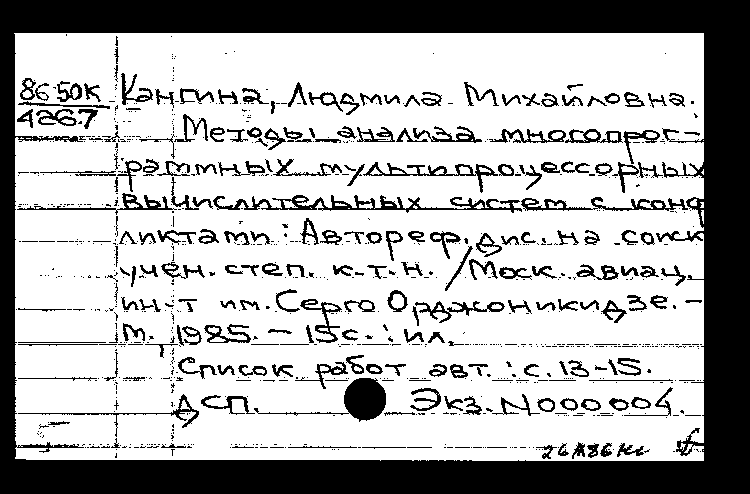 86 50к Кангина, Людмила Михайловна.
4267
Методы анализа многопрог-
раммных мультипроцессорных
вычислительных систем с конф
ликтами : Автореф. дис. на соиск
учен. степ. к.т.н. / Моск. авиац.
ин-т им. Серго Орджоникидзе. –
М., 1985. – 15 с. : ил.
Список работ авт. : с. 13-15.
ДСП. Экз. N 000004.